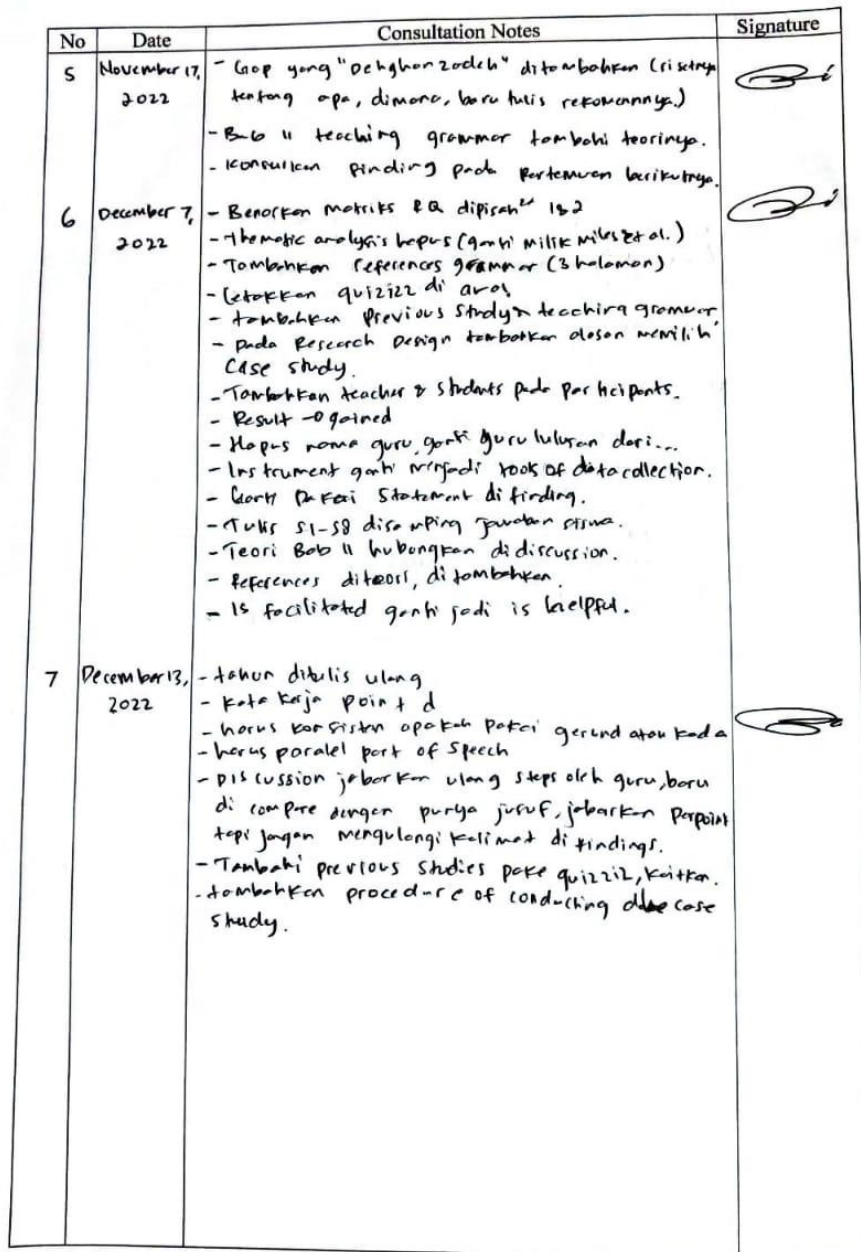 No Date Consultation Notes Signature
5 November 17, 2022
- Gap yang "Dehghanzadeh" ditambahkan (risetnya
tentang apa, dimana, baru tulis rekomennya.)
- Bab II teaching grammar tambahi teorinya.
- Konsulkan finding pada pertemuan berikutnya.
6 December 7, 2022
- Benarkan matriks RQ dipisah² 1&2
- Thematic analysis hapus (ganti milik Miles et al.)
- Tambahkan references grammar (3 halaman)
- Letakkan quizizz di awal
- tambahkan previous study teaching grammar
- pada Research Design tambahkan alasan memilih
Case study.
- Tambahkan teacher & students pada participants.
- Result → gained
- Hapus nama guru, ganti guru lulusan dari...
- Instrument ganti menjadi tools of data collection.
- Ganti pakai statement di finding.
- Tulis S1-S8 disamping jawaban siswa.
- Teori Bab II hubungkan di discussion.
- References diteori, ditambahkan.
- Is facilitated ganti jadi is helpful.
7 December 13, 2022
- tahun ditulis ulang
- Kata kerja point d
- harus konsisten apakah pakai gerund atau
- harus paralel part of speech
- Discussion jabarkan ulang steps oleh guru, baru
di compare dengan punya jusuf, jabarkan perpoint
tapi jangan mengulangi kalimat di findings.
- Tambahi previous studies pake quizziz, kaitkan.
- tambahkan procedure of conducting case
study.